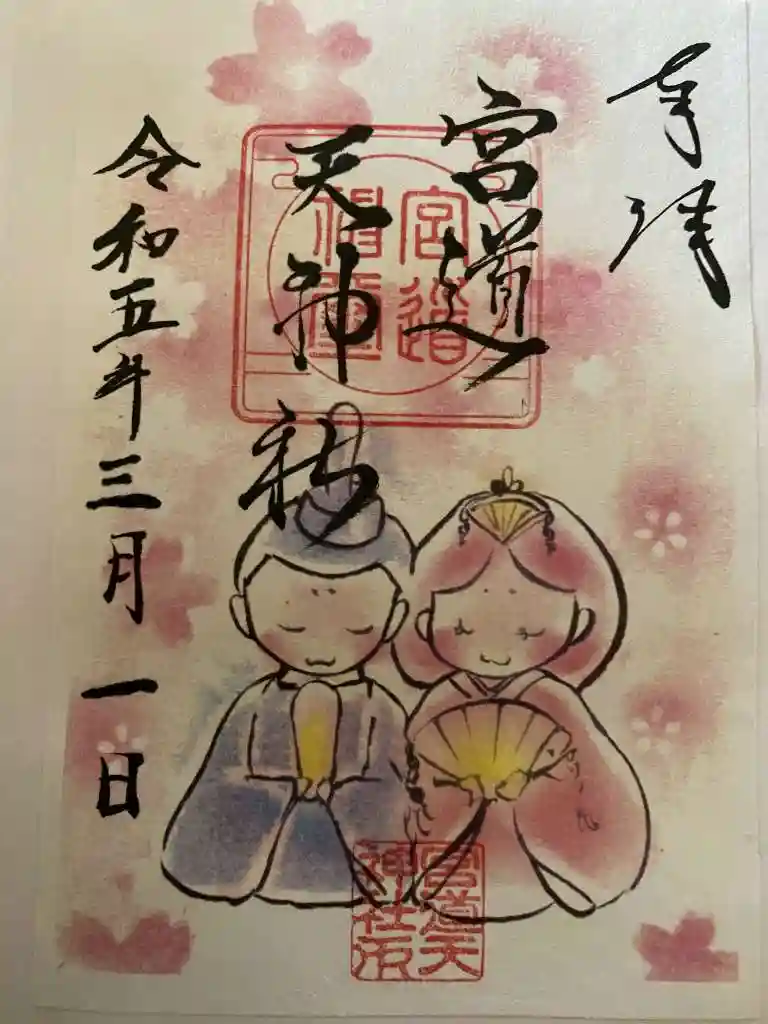 奉拝
宮道
天神社
令和五年三月一日
宮道
宮道天
神社印